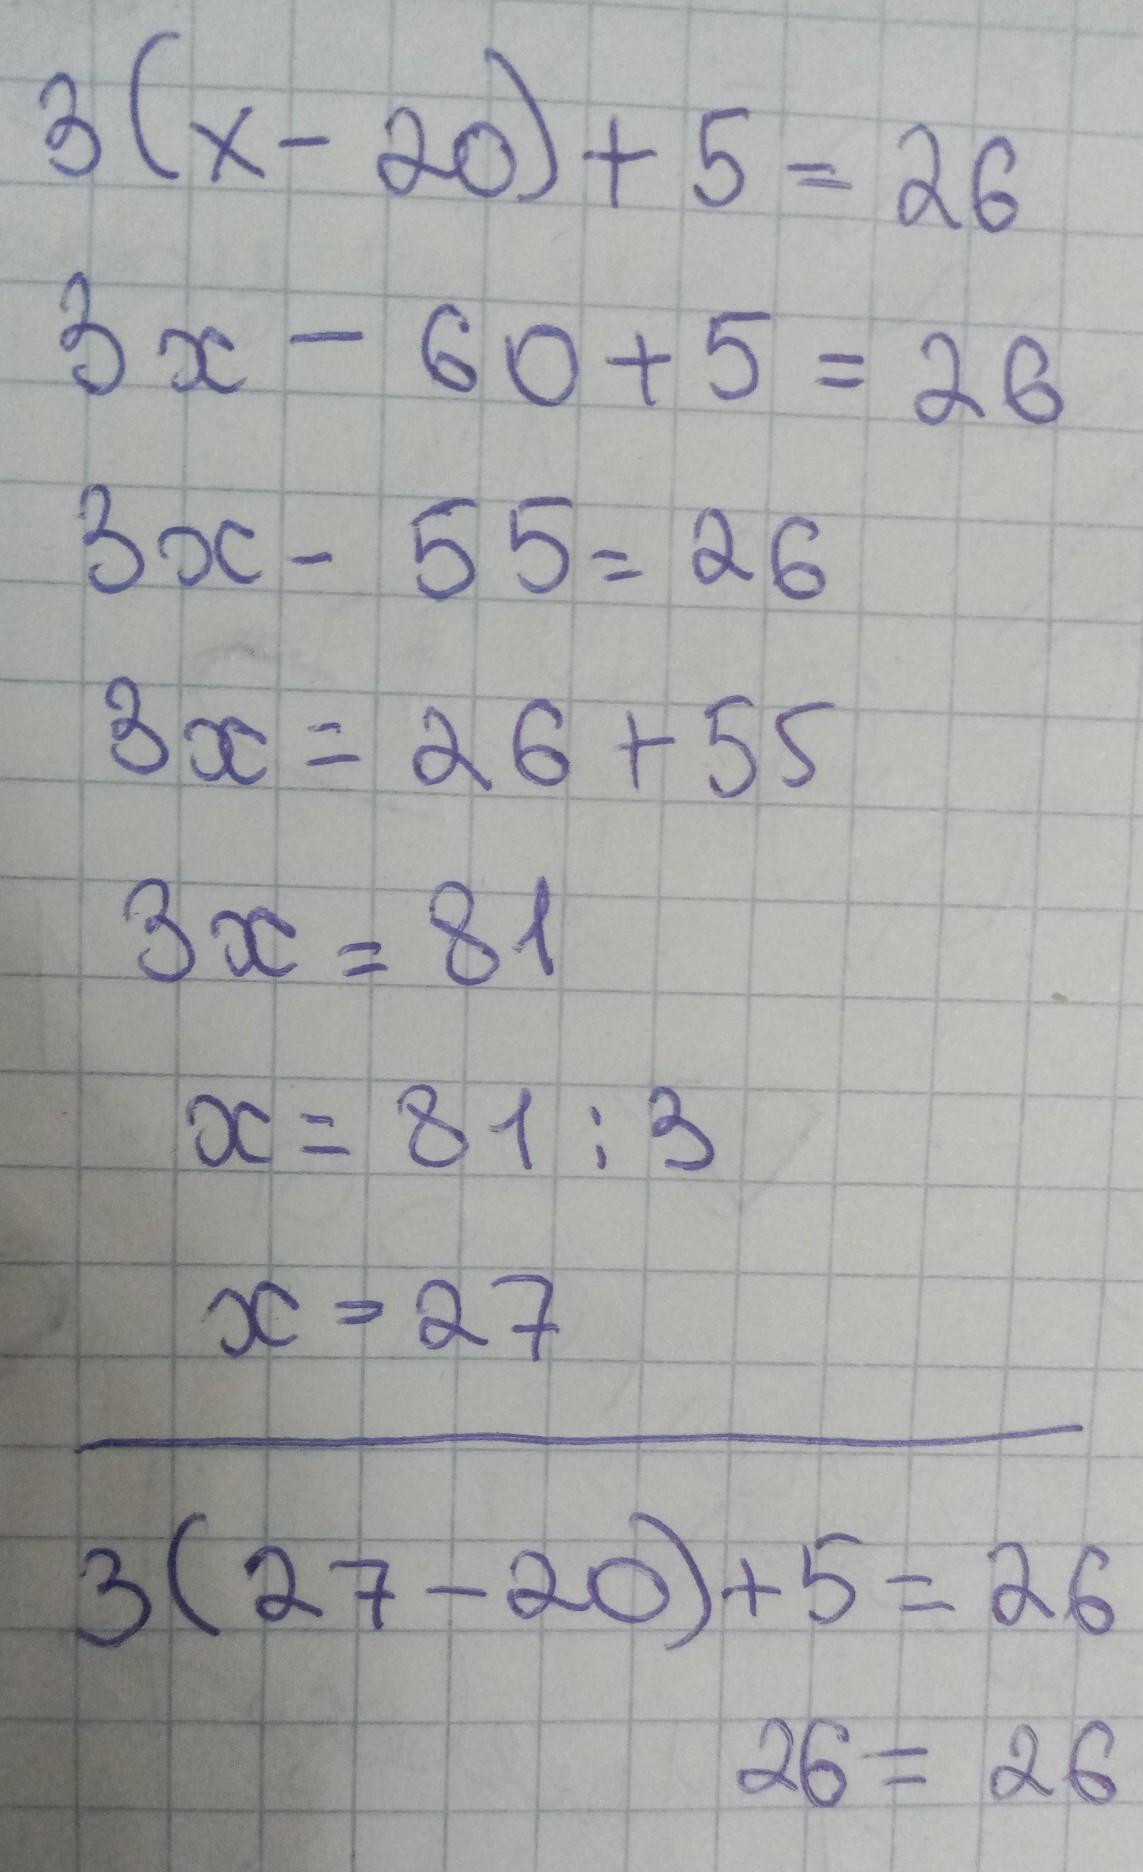 3(x - 20) + 5 = 26
3x - 60 + 5 = 26
3x - 55 = 26
3x = 26 + 55
3x = 81
x = 81 : 3
x = 27
3(27 - 20) + 5 = 26
26 = 26